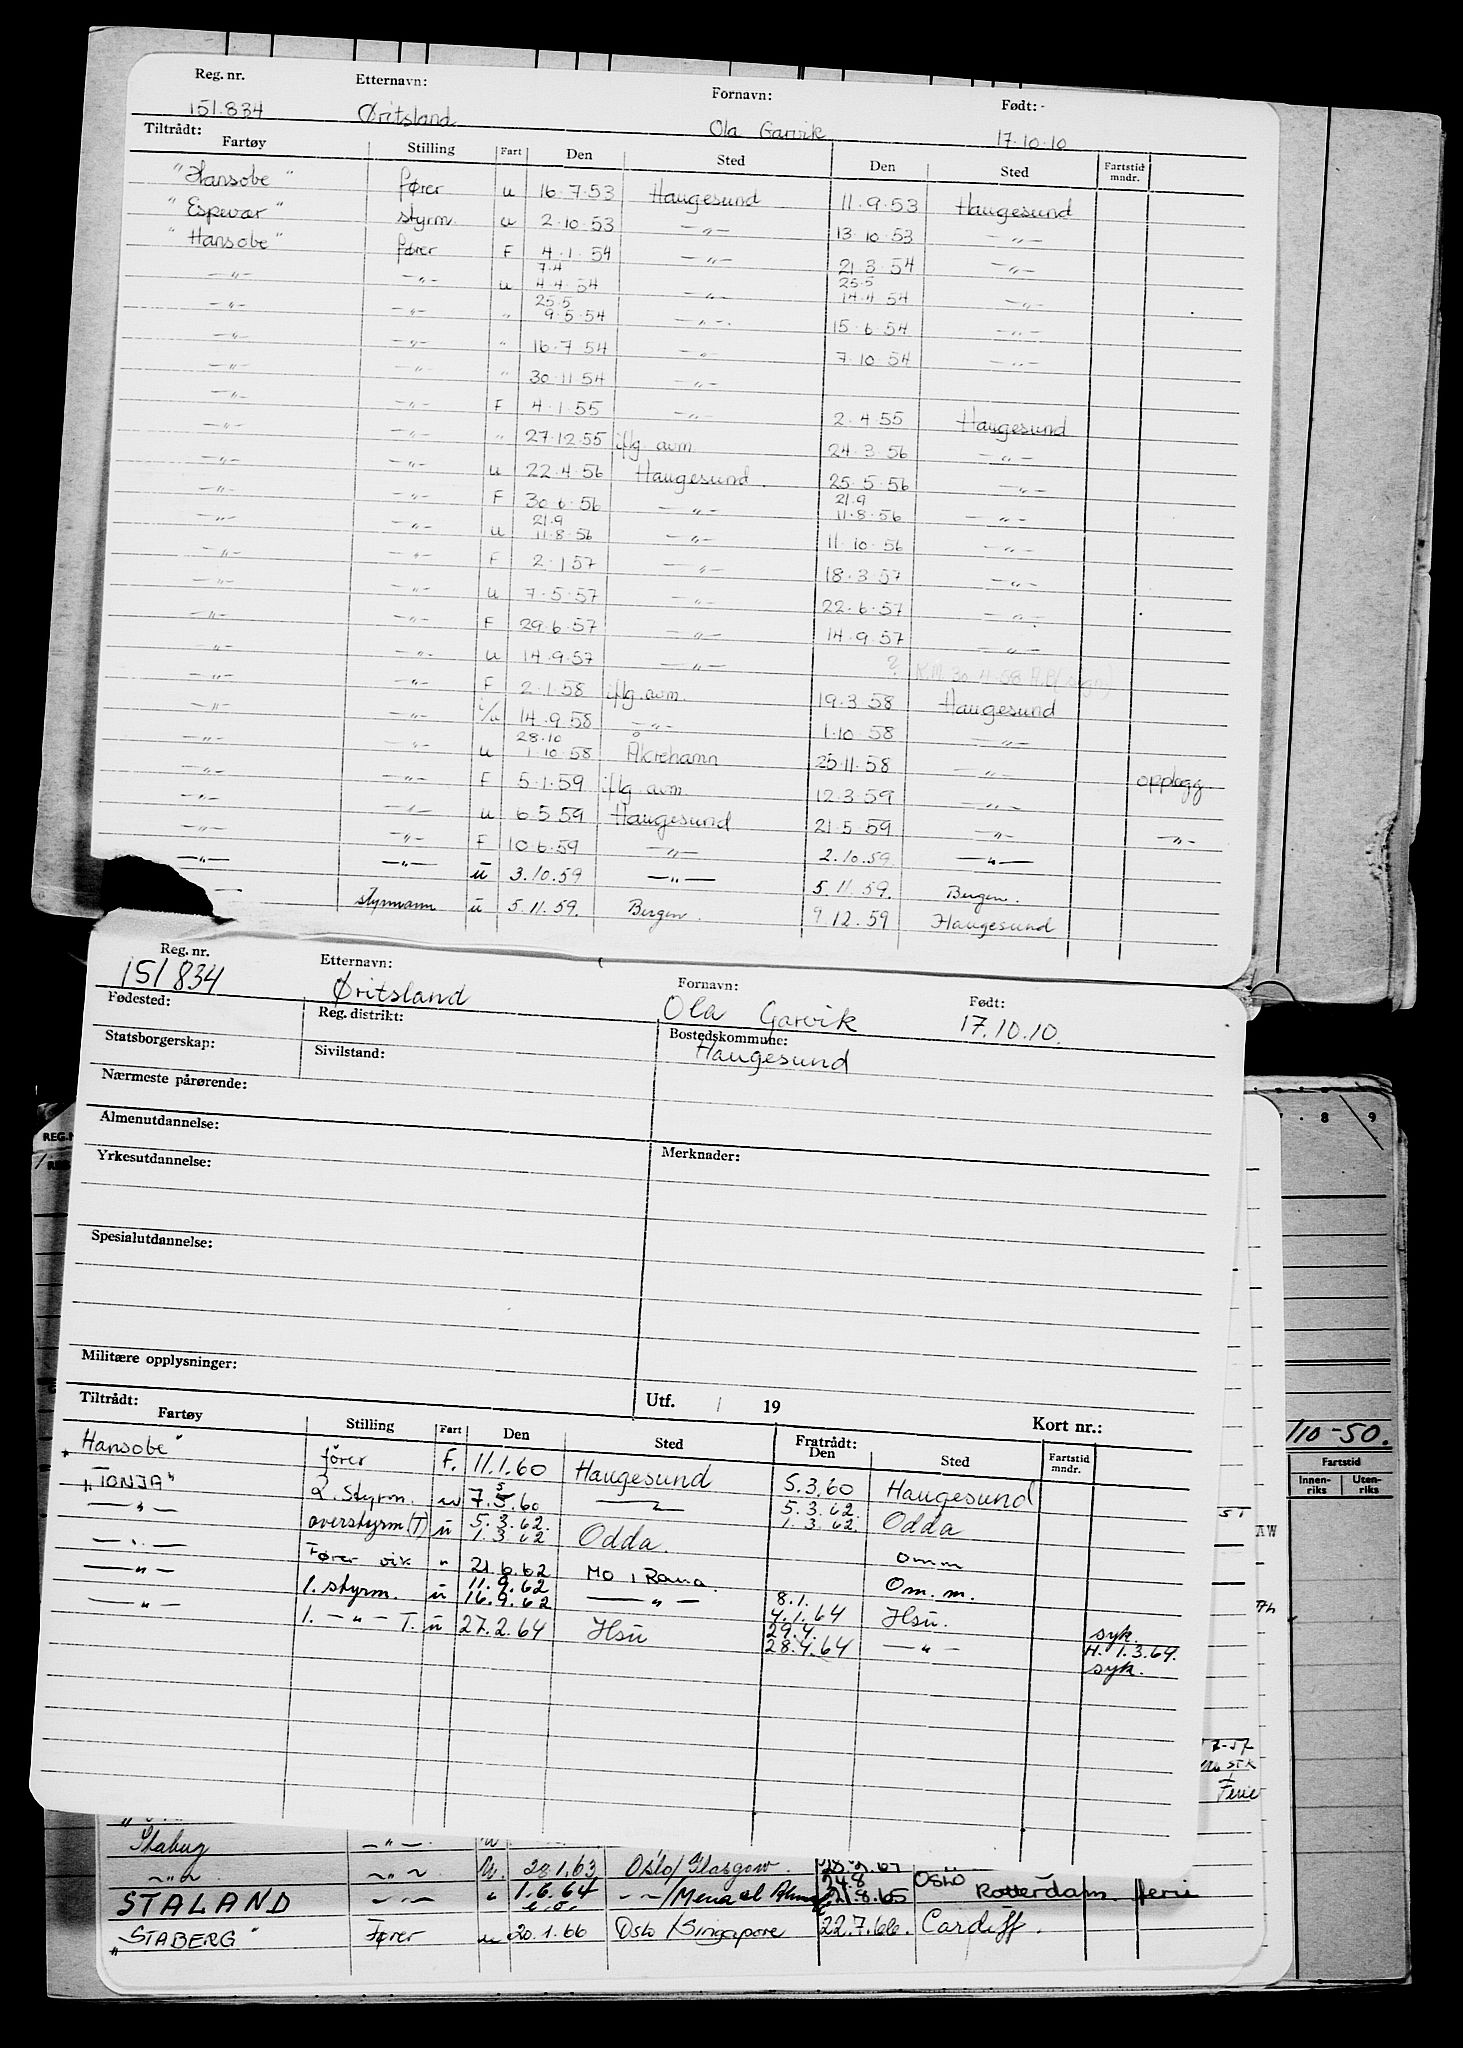 Reg. nr. Etternavn: Fornavn: Født:
151.834 Øritsland Ola Garvik 17.10.10
Tiltrådt:
Fartøy Stilling Fart Den Sted Den Sted Fartstid mndr.
"Hansobe" fører u 16.7.53 Haugesund 11.9.53 Haugesund
"Espevær" styrm u 2.10.53 —"— 13.10.53 —"—
"Hansobe" fører F 4.1.54 —"— 21.3.54 —"—
7.4 25.5
—"— —"— u 4.4.54 —"— 14.4.54 —"—
25.5
—"— —"— " 9.5.54 —"— 15.6.54 —"—
—"— —"— " 16.7.54 —"— 7.10.54 —"—
—"— —"— " 30.11.54 —"—
—"— —"— F 4.1.55 —"— 2.4.55 Haugesund
—"— —"— " 27.12.55 iflg. avm 24.3.56 —"—
—"— —"— u 22.4.56 Haugesund 25.5.56 —"—
21.9
—"— —"— F 30.6.56 —"— 11.8.56 —"—
21.9
—"— —"— u 11.8.56 —"— 11.10.56 —"—
—"— —"— F 2.1.57 —"— 18.3.57 —"—
—"— —"— u 7.5.57 —"— 22.6.57 —"—
—"— —"— F 29.6.57 —"— 14.9.57 —"—
—"— —"— u 14.9.57 —"— ? 30.4.58
—"— —"— F 2.1.58 iflg. avm. 19.3.58 Haugesund
—"— —"— i/u 14.9.58 —"— 1.10.58 —"—
28.10
—"— —"— u 1.10.58 Åkrehamn 25.11.58 —"— opplagg.
—"— —"— F 5.1.59 iflg. avm. 12.3.59 —"—
—"— —"— u 6.5.59 Haugesund 21.5.59 —"— —"—
—"— —"— F 10.6.59 —"— 2.10.59 —"—
—"— —"— u 3.10.59 —"— 5.11.59. Bergen.
— styrmann u 5.11.59. Bergen. 9.12.59 Haugesund
Reg. nr. Etternavn: Fornavn: Født:
151834 Øritsland Ola Garvik 17.10.10.
Fødested: Reg. distrikt: Bostedskommune:
Haugesund
Statsborgerskap: Sivilstand:
Nærmeste pårørende:
Almenutdannelse:
Yrkesutdannelse: Merknader:
Spesialutdannelse:
Militære opplysninger:
Utf. / 19 Kort nr.:
Tiltrådt: Fratrådt:
Fartøy Stilling Fart Den Sted Den Sted Fartstid mndr.
"Hansobe" fører F. 11.1.60 Haugesund 5.3.60 Haugesund
5
"TONJA" 2. Styrm. u 7.5.60 —"— 5.3.62. Odda
1.3.62.
—"— overstyrm (T) u 5.3.62. Odda. omm
1.3.62
—"— Fører vik " 21.6.62 Mo i Rana. Om.m.
11.9.62 8.1.
—"— 1. styrm. u 16.9.62 —"— 4.1.64 Hsu. syk.
29.4. H. 1.3.64.
—"— 1. —"— T. u 27.2.64 Hsu 28.4.64 —"— syk.
REG.N
8 9
/10-50.
Fartstid
Innen-riks Uten-riks
AW
Ferie
—"— u
—"— —"— u. 20.1.63 Oslo/Glasgow.
24.8 Oslo
STALAND —"— " 1.6.64 —"—/Mena el 21.8.65 Rotterdam. ferie
"STABERG" Fører u 20.1.66 Oslo/Singapore 22.7.66. Cardiff.